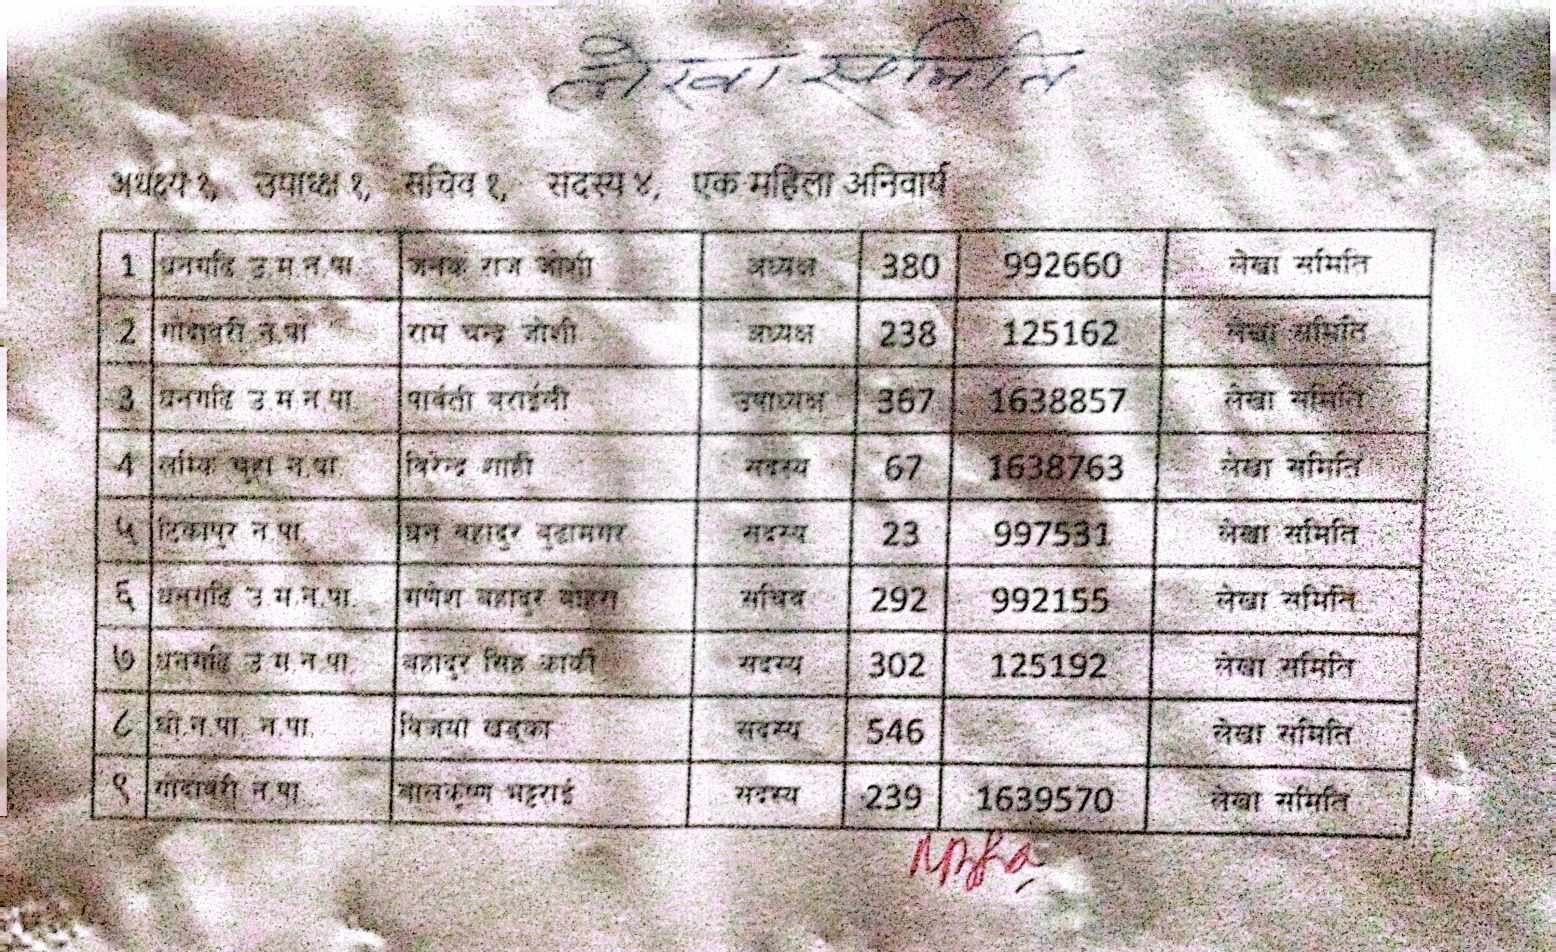 लेखा समिति
अर्धक्ष्य १, उपाध्क्ष १, सचिव १, सदस्य ४, एक महिला अनिवार्य
1 धनगढि उ.म.न.पा. जनक राज जोशी अध्यक्ष 380 992660 लेखा समिति
2 गोदावरी न.पा राम चन्द्र जोशी अध्यक्ष 238 125162 लेखा समिति
3 धनगढि उ.म.न.पा. पार्वती वराईली उपाध्यक्ष 367 1638857 लेखा समिति
4 लम्कि चुहा न.पा. विरेन्द्र शाही सदस्य 67 1638763 लेखा समिति
५ टिकापुर न.पा. धन बहादुर बुढामगर सदस्य 23 997531 लेखा समिति
६ धनगढि उ.म.न.पा. गणेश बहादुर बोहरा सचिव 292 992155 लेखा समिति
७ धनगढि उ.म.न.पा. बहादुर सिह कार्की सदस्य 302 125192 लेखा समिति
८ घो.न.पा. न.पा. विजया खड्का सदस्य 546 लेखा समिति
९ गोदावरी न.पा. बालकृष्ण भट्टराई सदस्य 239 1639570 लेखा समिति